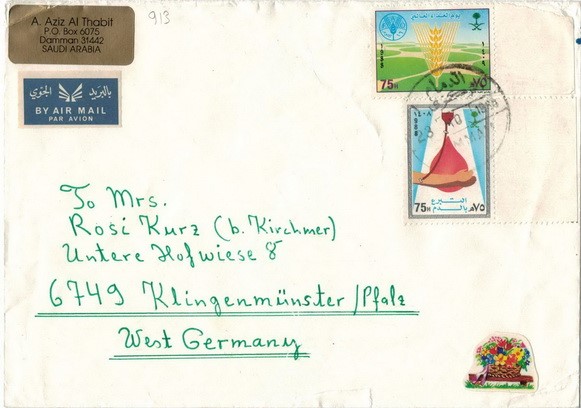 A. Aziz Al Thabit
P.O. Box 6075
Damman 31442
SAUDI ARABIA
913
بالبريد الجوي
BY AIR MAIL
PAR AVION
يوم الغذاء العالمي
75H
الدمام
1408
التبرع
بالدم
75H ٧٥هـ
To Mrs.
Rosi Kurz (b. Kirchmer)
Untere Hofwiese 8
6749 Klingenmünster/Pfalz
West Germany